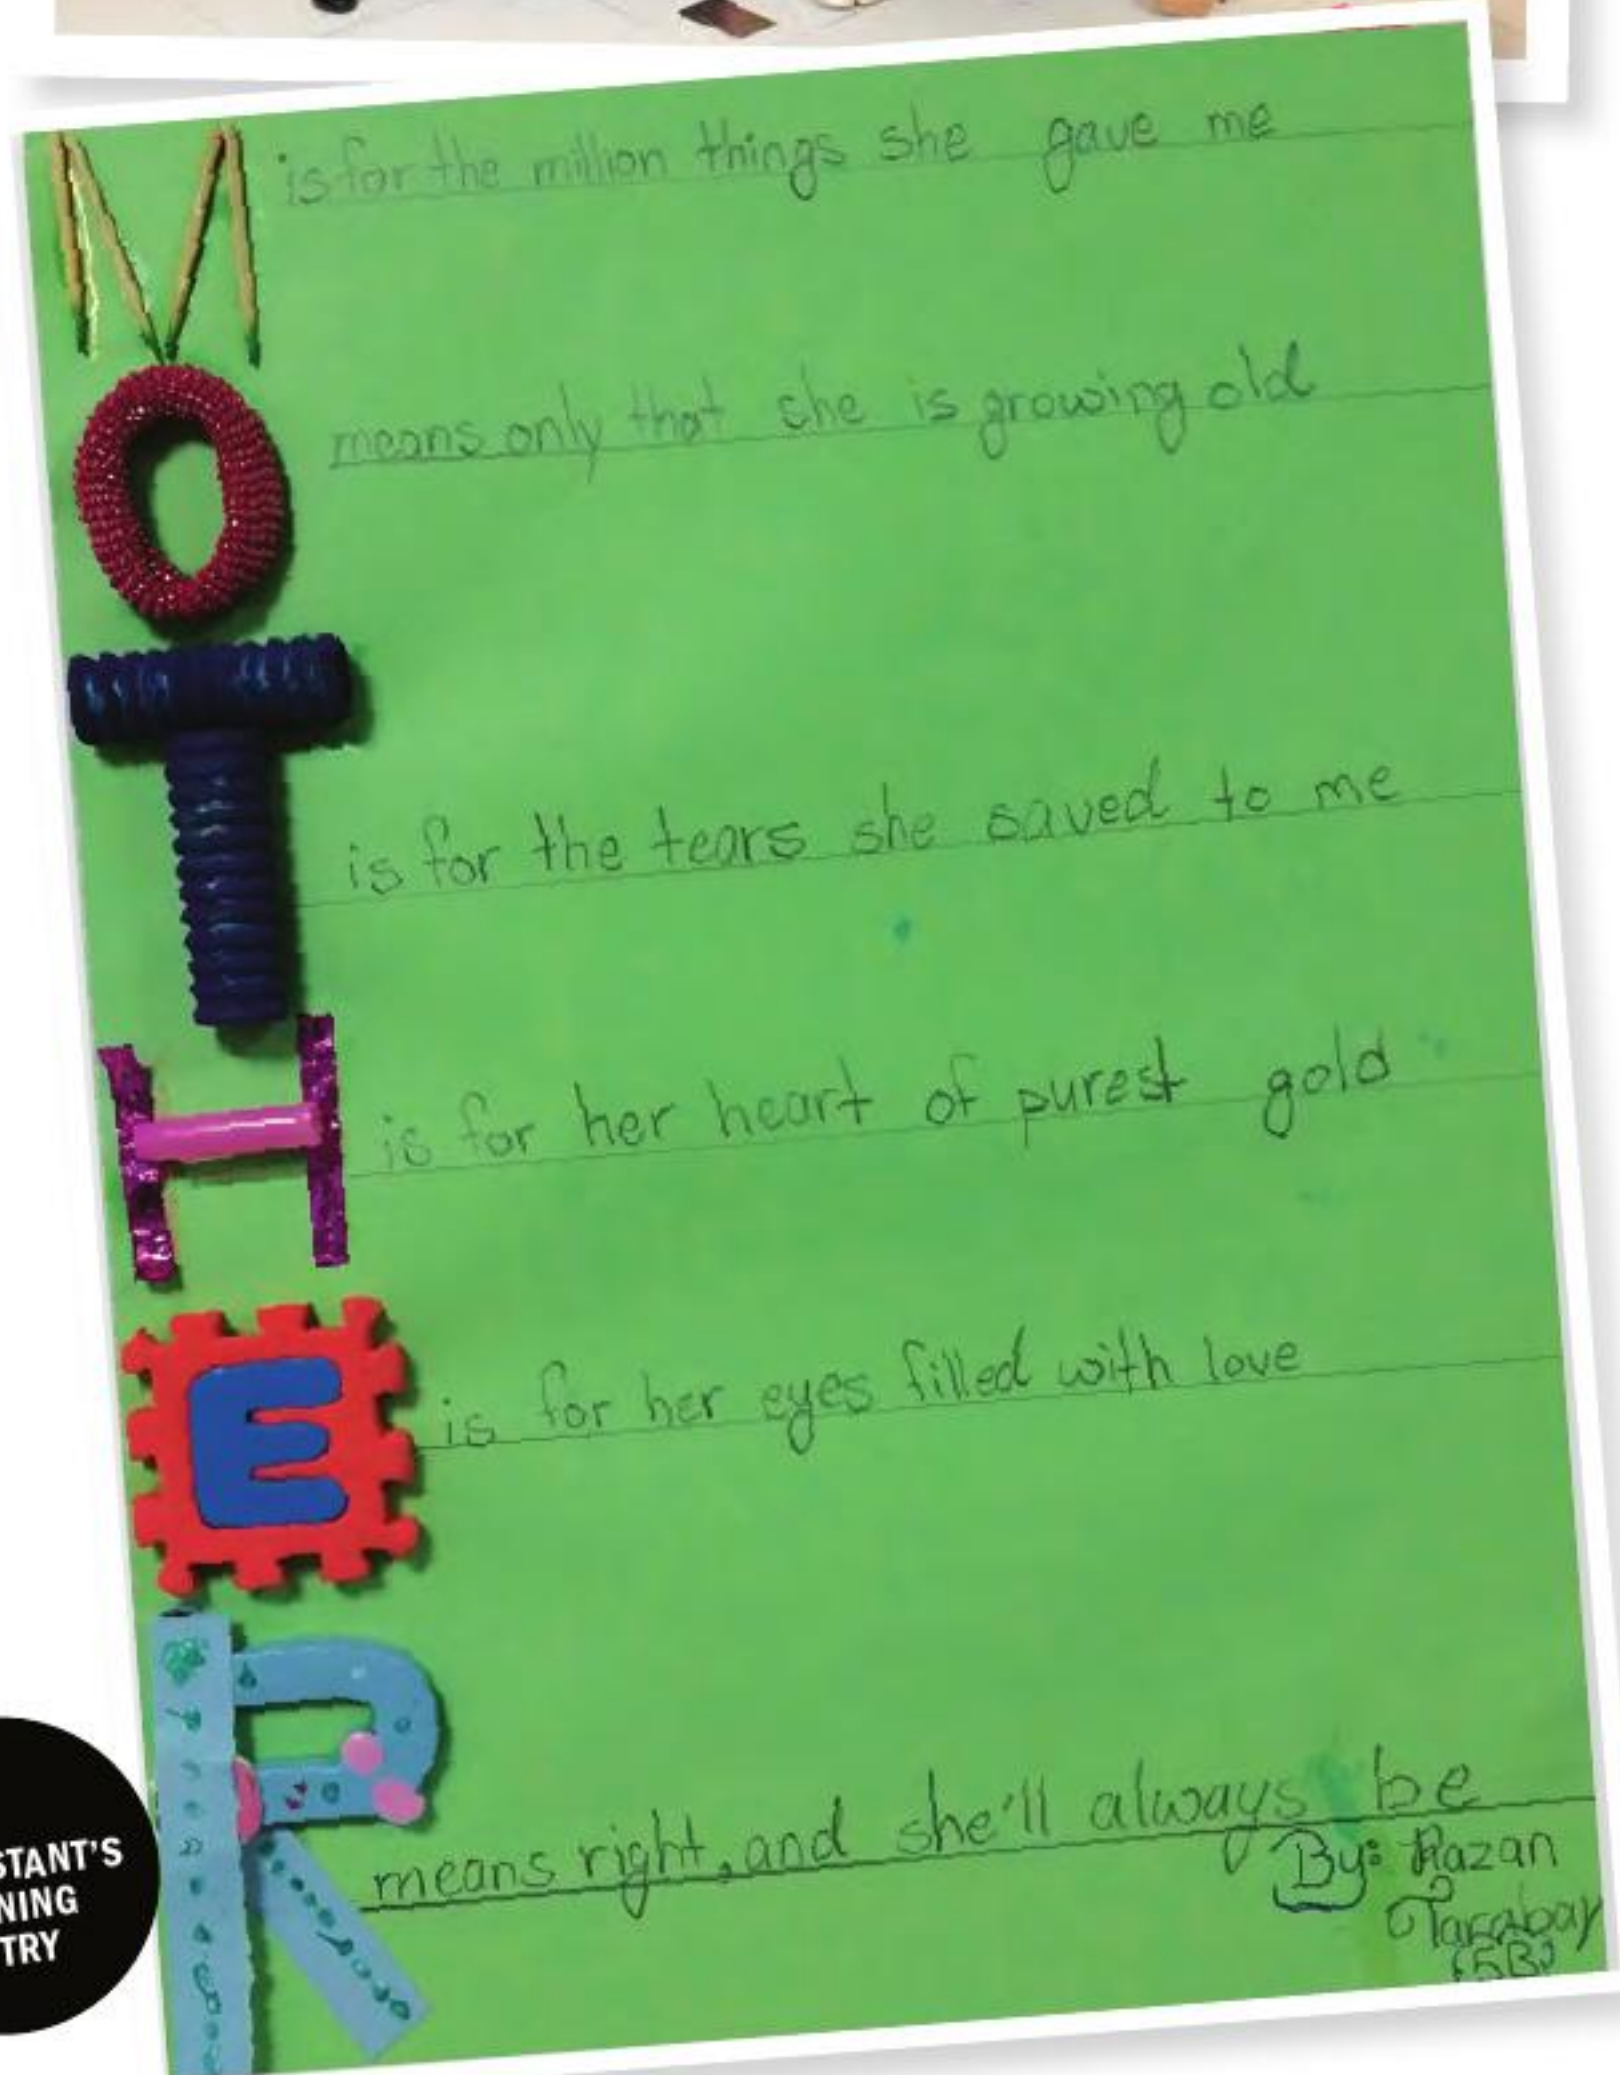 M is for the million things she gave me
O means only that she is growing old
T is for the tears she saved to me
H is for her heart of purest gold
E is for her eyes filled with love
R means right, and she'll always be
By: Razan
Tarabay
(5B)
STANT'S
NING
TRY